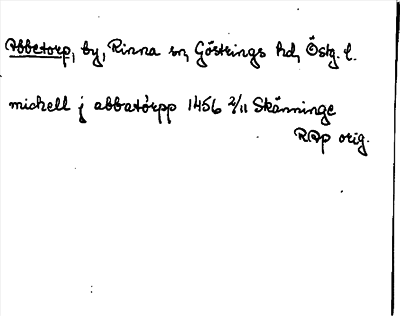 Abbetorp, by, Rinna sn, Göstrings hd, Östg. l.
mickell j abbatörpp 1456 2/11 Skänninge
RAp orig.